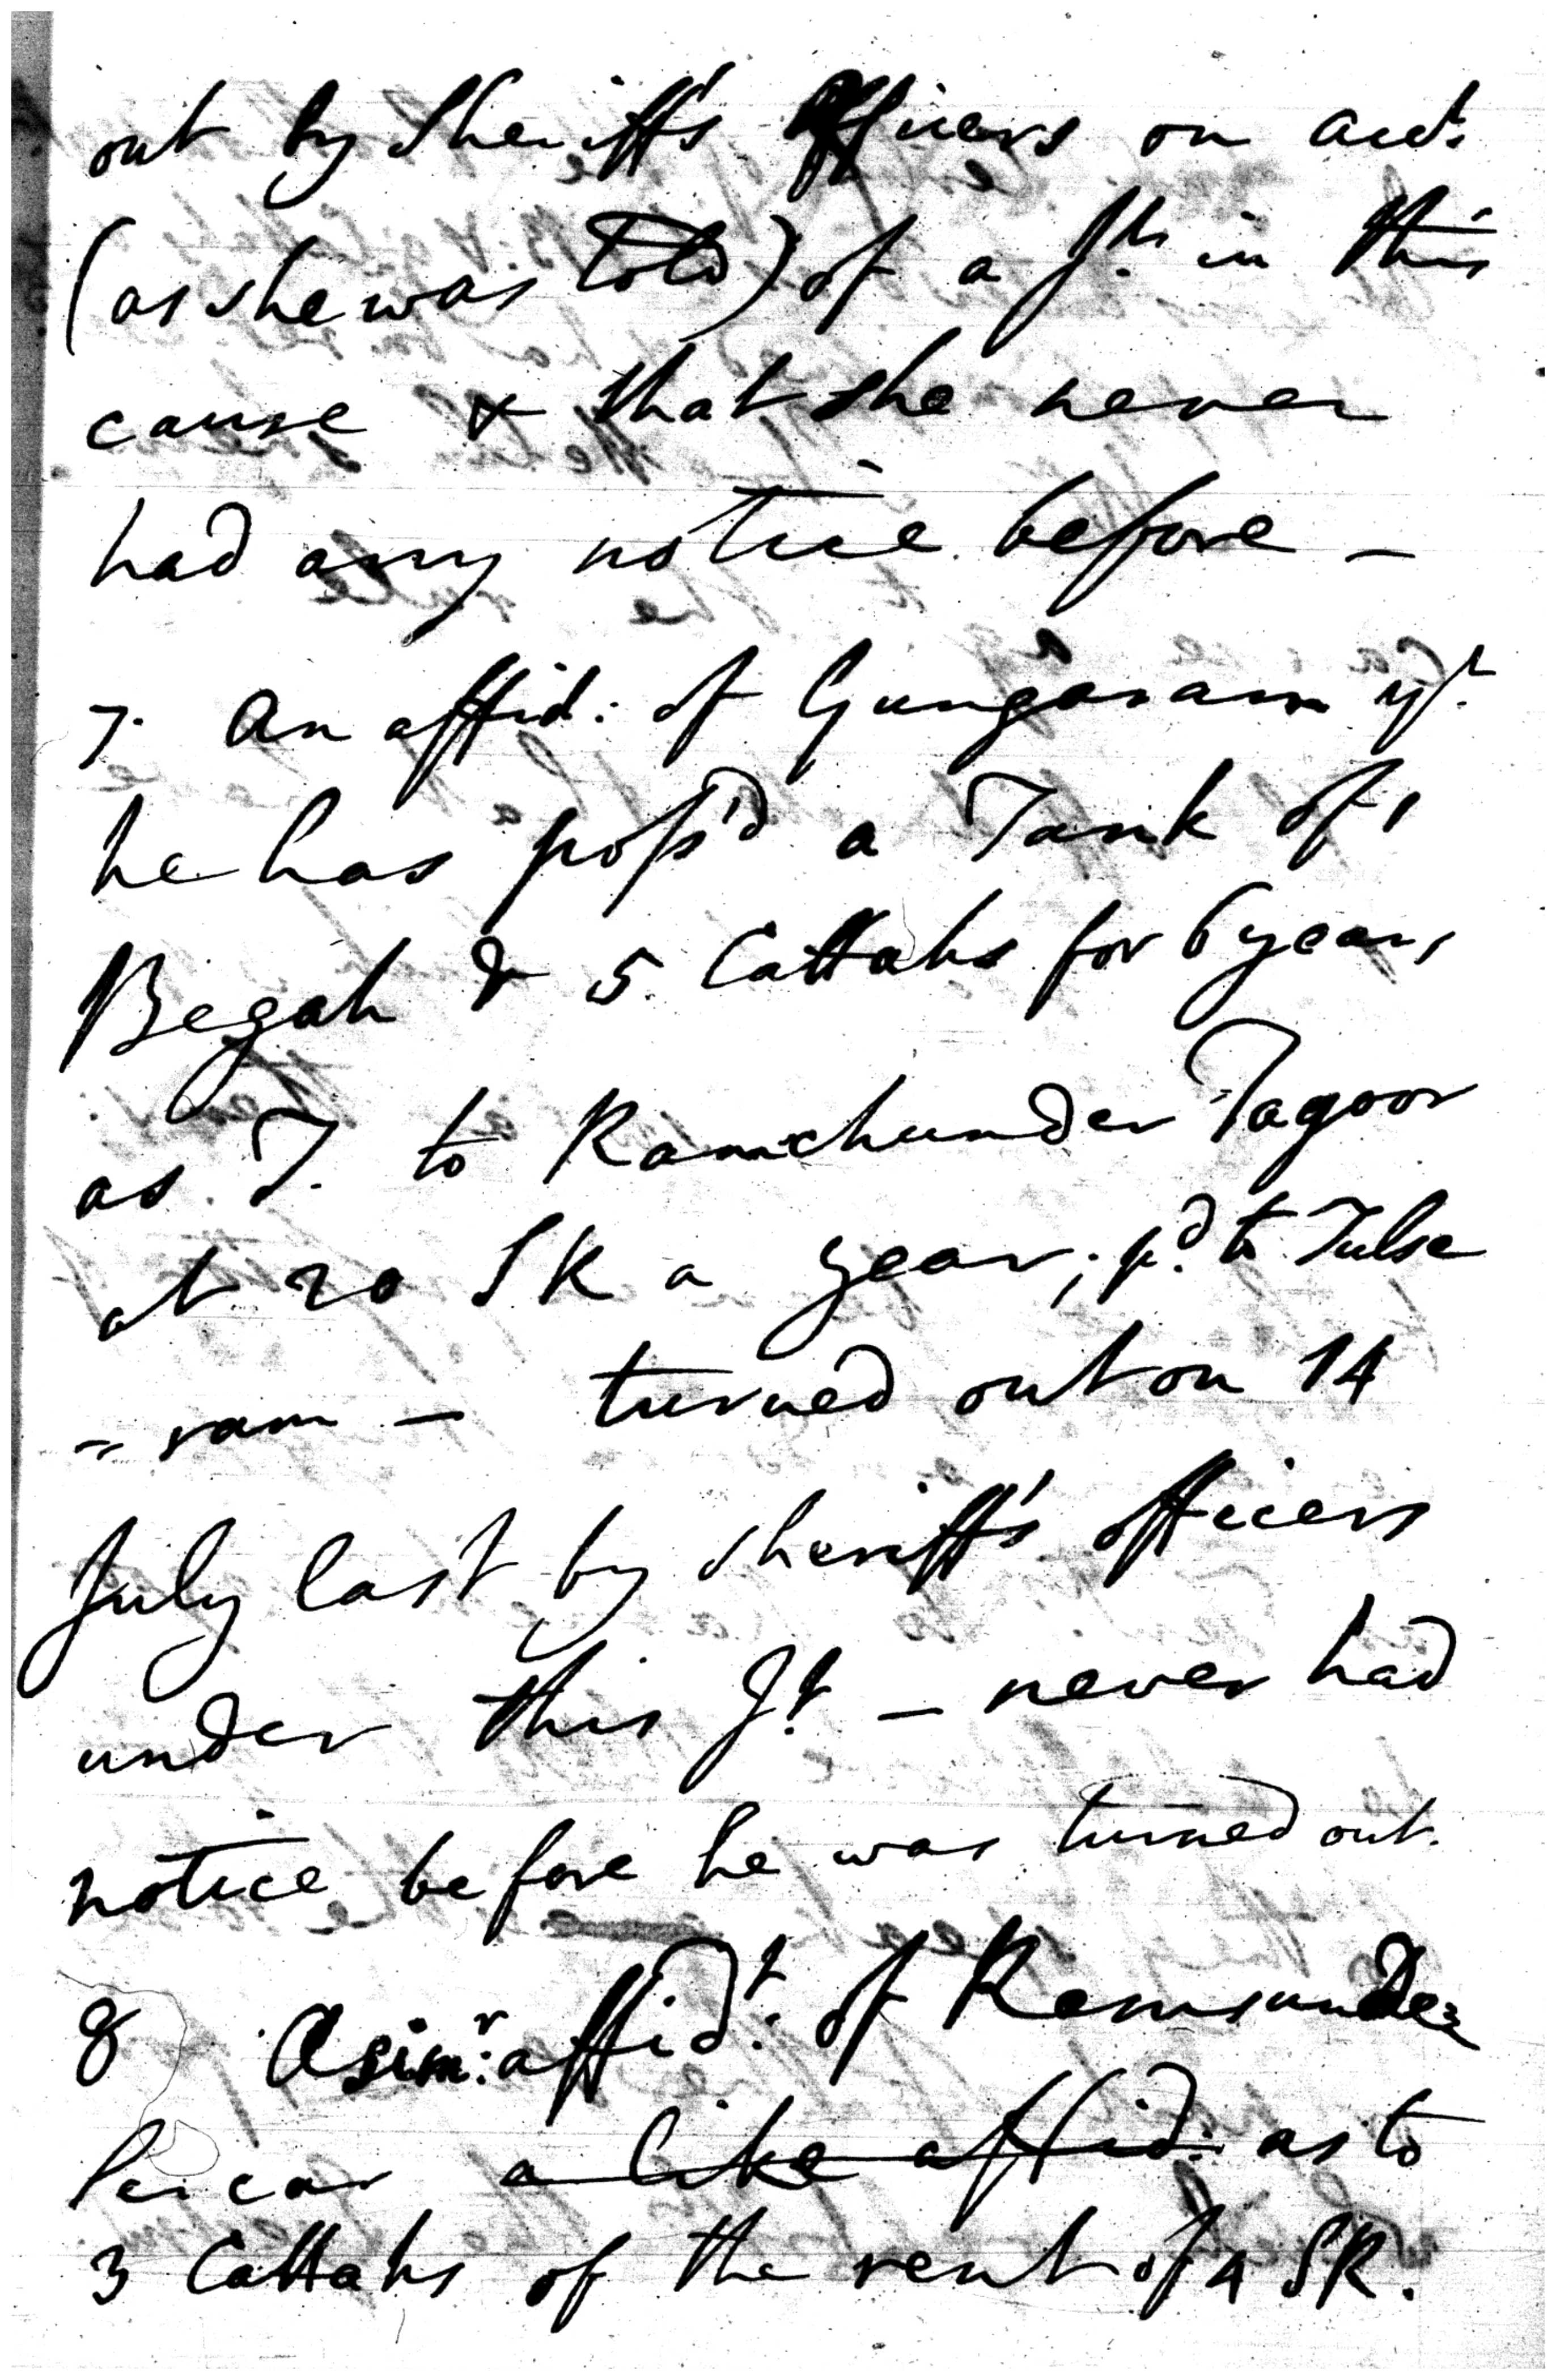 out by Sheriff's Officers on acct:
(as she was told) of a Jt. in this
cause & that she never
had any notice before —
7. An affid: of Gungaram yt.
he has poss'd a Tank of 1
Begah & 5 Cattahs for 6 years
as T. to Ramchunder Tagoor
at 20 SR a year; pd. to Tulse
= ram — turned out on 14
July last by Sheriff's officers
under this Jt. — never had
notice before he was turned out.
8 A simr: affidt: of Ramsunder
Sircar a like affid: as to
3 Cattahs of the rent of 4 SR.